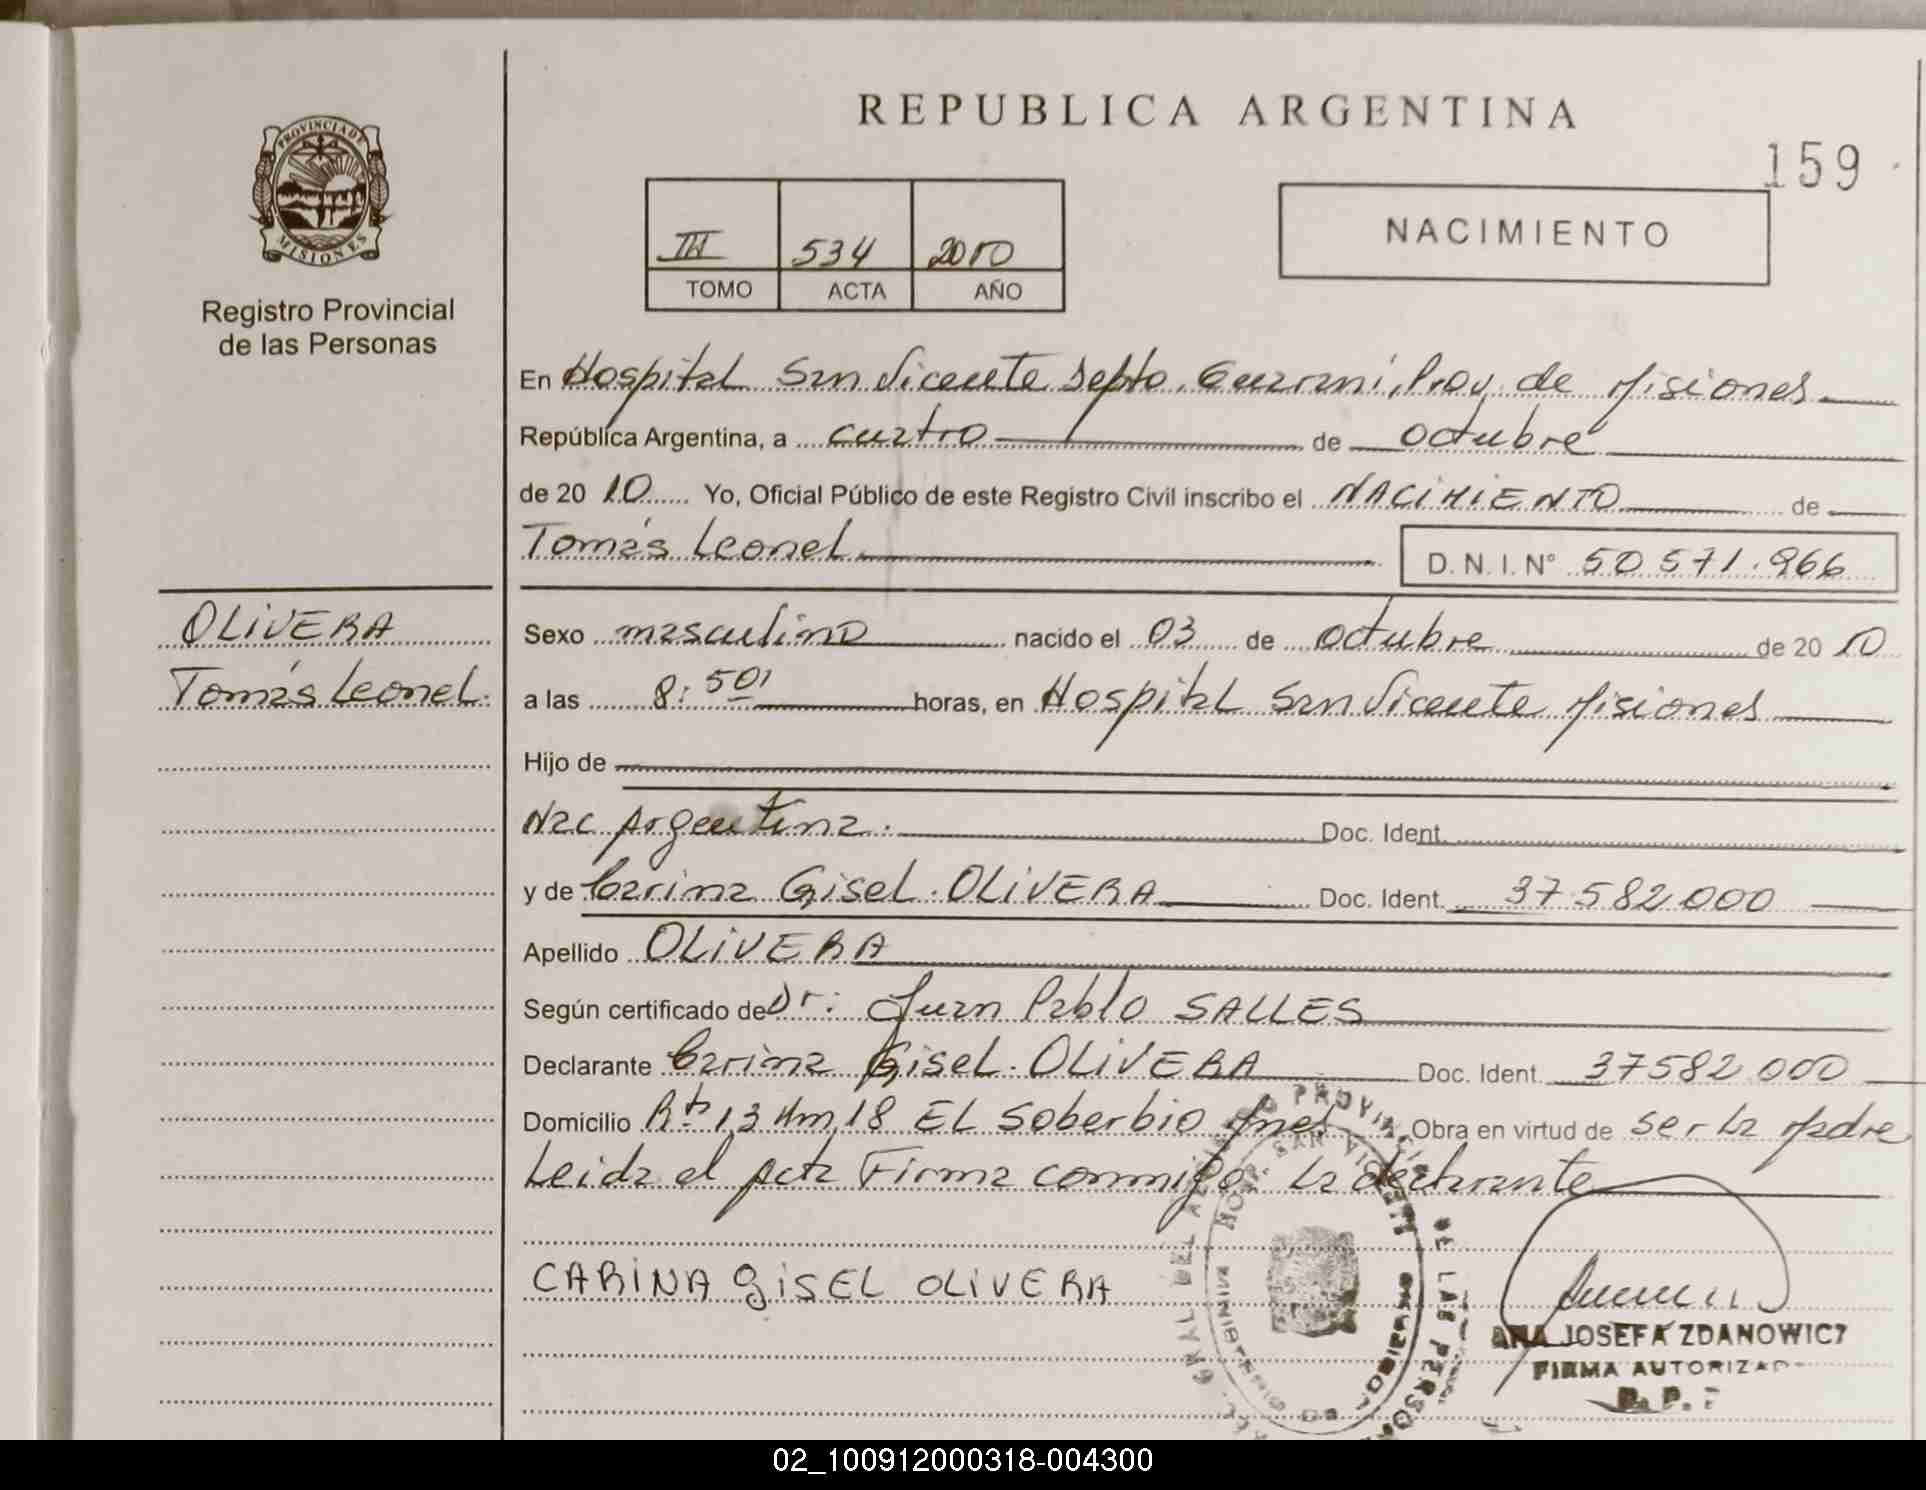 REPUBLICA ARGENTINA
159
PROVINCIA DE
MISIONES
Registro Provincial
de las Personas
III 534 2010
TOMO ACTA AÑO
NACIMIENTO
En Hospital San Vicente Depto. Guaraní, Prov. de Misiones
República Argentina, a cuatro de octubre
de 20 10 Yo, Oficial Público de este Registro Civil inscribo el NACIMIENTO de
Tomás Leonel D. N. I. Nº 50 571.966
OLIVERA
Tomás Leonel.
Sexo masculino nacido el 03 de octubre de 20 10
a las 8:50' horas, en Hospital San Vicente Misiones
Hijo de
Nac Argentina. Doc. Ident.
y de Carina Gisel. OLIVERA Doc. Ident. 37 582 000
Apellido OLIVERA
Según certificado de Dr: Juan Pablo SALLES
Declarante Carina Gisel. OLIVERA Doc. Ident. 37582 000
Domicilio Rta 13 Km 18 EL Soberbio Mnes Obra en virtud de ser la Madre
Leida el Acta Firma conmigo la declarante
CARINA GISEL OLIVERA
ANA JOSEFA ZDANOWICZ
FIRMA AUTORIZAD
R. P. P
02_100912000318-004300